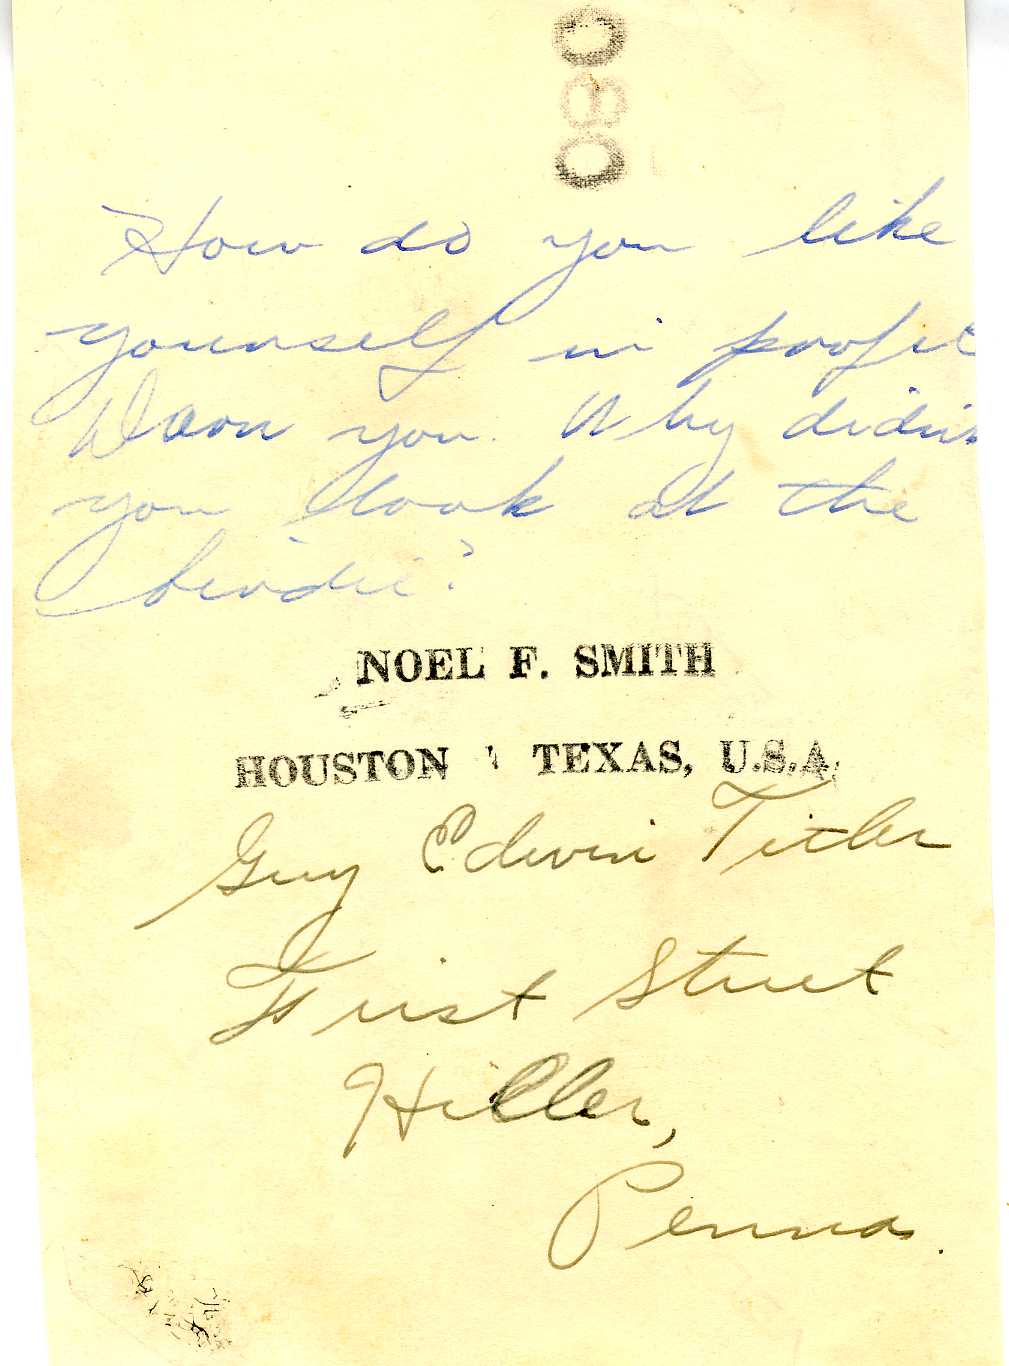 080
How do you like
yourself in profil
Darn you. Why didn't
you look at the
birdie?
NOEL F. SMITH
HOUSTON TEXAS, U.S.A.
Guy Edwin Titler
First Street
Hiller,
Penna.